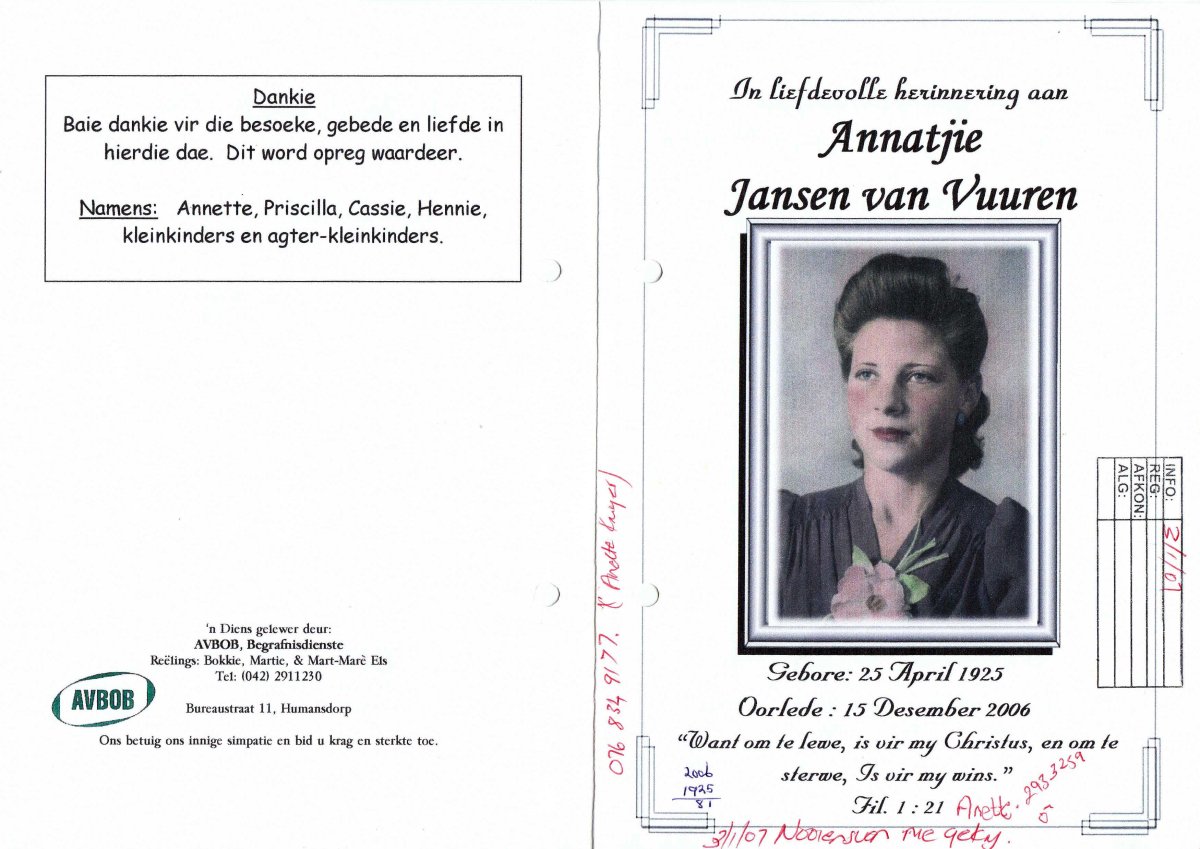 Dankie
Baie dankie vir die besoeke, gebede en liefde in
hierdie dae. Dit word opreg waardeer.
Namens: Annette, Priscilla, Cassie, Hennie,
kleinkinders en agter-kleinkinders.
'n Diens gelewer deur:
AVBOB, Begrafnisdienste
Reëlings: Bokkie, Martie, & Mart-Marè Els
Tel: (042) 2911230
AVBOB
Bureaustraat 11, Humansdorp
Ons betuig ons innige simpatie en bid u krag en sterkte toe.
076 834 9177.
In liefdevolle herinnering aan
Annatjie
Jansen van Vuuren
INFO: 3/1/07
REG:
AFKON:
ALG:
Gebore: 25 April 1925
Oorlede : 15 Desember 2006
“Want om te lewe, is vir my Christus, en om te
sterwe, Is vir my wins.”
Fil. 1 : 21
Anette. 293 3259
2006
1925
81
3/1/07 Nooiensvan nie gekry.